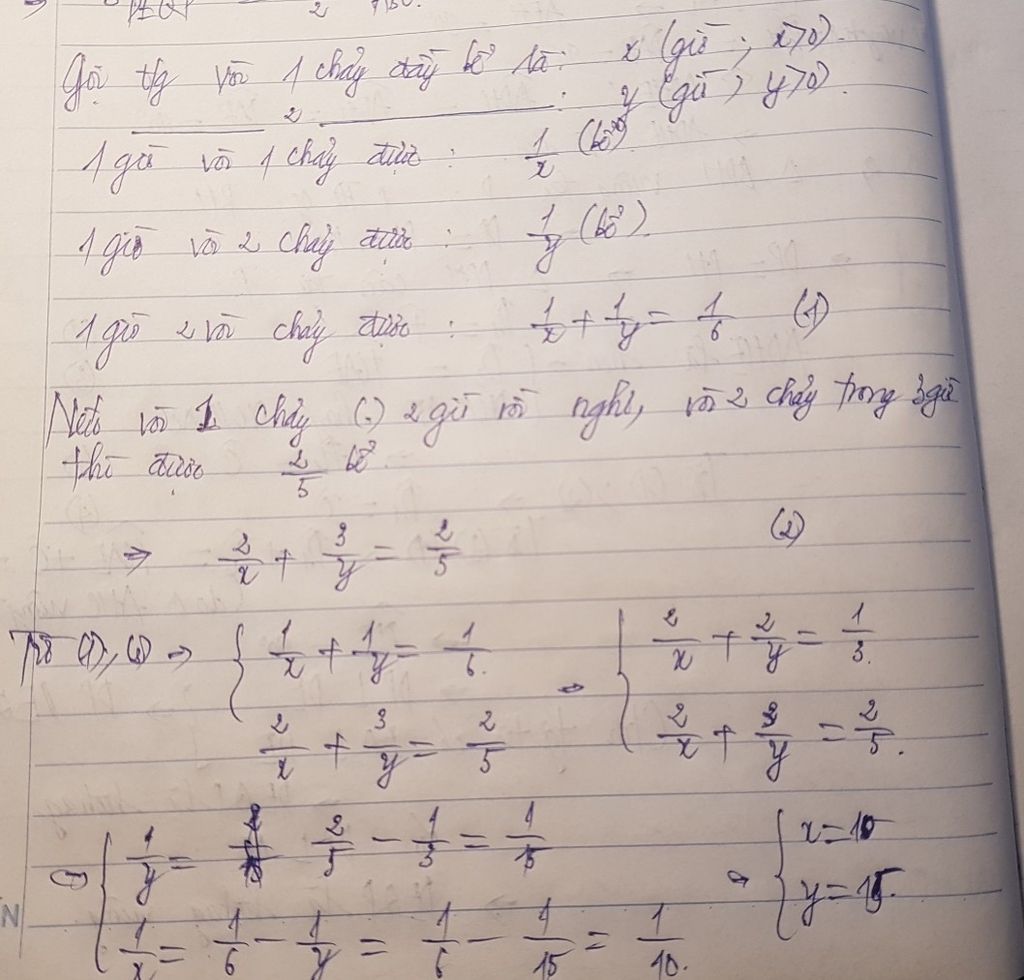 Gọi tg vòi 1 chảy đầy bể là: x (giờ; x>0).
2 : y (giờ; y>0).
1 giờ vòi 1 chảy được : 1/x (bể)
1 giờ vòi 2 chảy được : 1/y (bể).
1 giờ 2 vòi chảy được : 1/x + 1/y = 1/6 (1)
Nếu vòi 1 chảy (.) 2 giờ rồi nghỉ, vòi 2 chảy trong 3 giờ
thì được 2/5 bể.
=> 2/x + 3/y = 2/5 (2)
Từ (1), (2) => { 1/x + 1/y = 1/6. ⇔ { 2/x + 2/y = 1/3.
2/x + 3/y = 2/5 2/x + 3/y = 2/5.
⇔ { 1/y = 2/5 - 1/3 = 1/15 ⇔ { x = 10
1/x = 1/6 - 1/y = 1/6 - 1/15 = 1/10. y = 15.
N